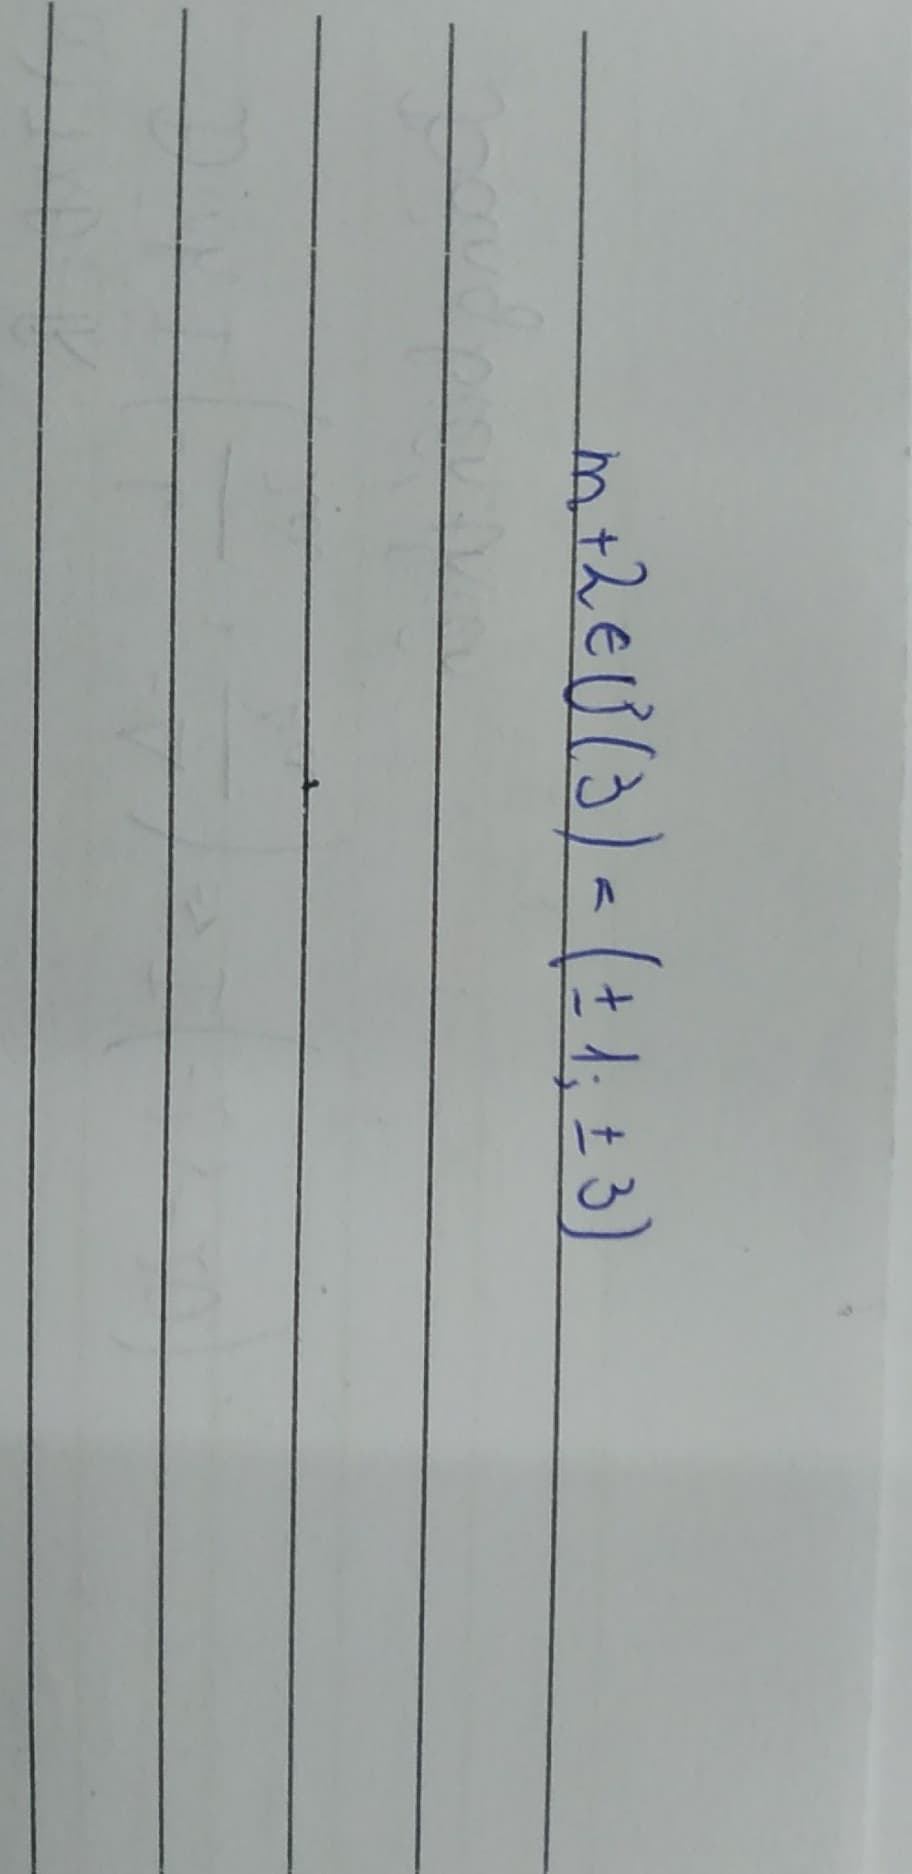 m+2∈Ư(3) = (±1; ±3)